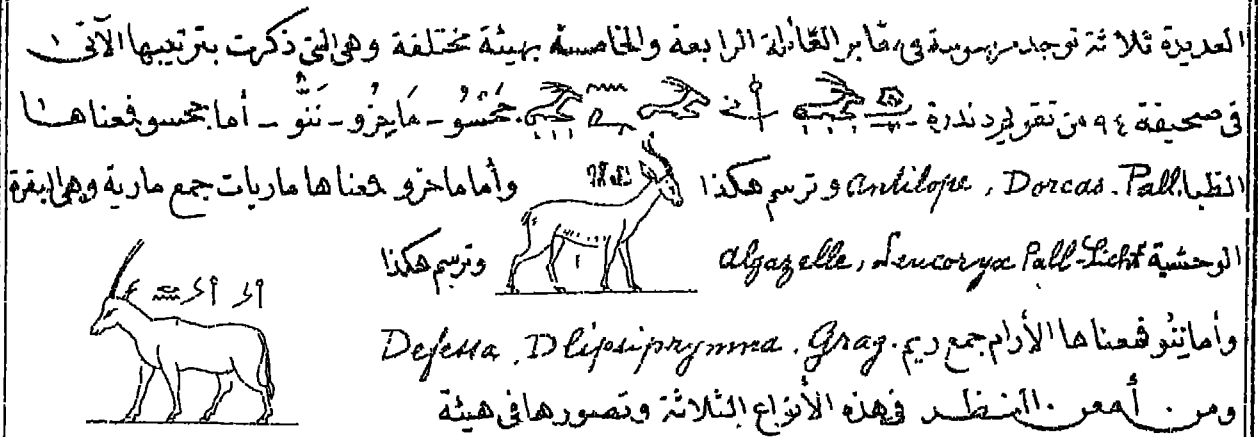 العديدة ثلاثة توجد مرسومة في مقابر العائلة الرابعة والخامسة بهيئة مختلفة وهى التى ذكرت بترتيبها الآتى
فى صحيفة ٩٤ من تقرير دندرة حَحْسُو - مَايحزُو - نَنُّو - أما ححسو فمعناها
الظبا Antilope, Dorcas. Pall وترسم هكذا وأما ماحزو فمعناها ماريات جمع مارية وهى البقرة
الوحشية algazelle, Leucoryx Pall-Licht وترسم هكذا
وأما نَنُو فمعناها الأرام جمع ريم. Defessa, Dlipsiprymma. Gray.
ومن أمعن النظر فى هذه الأنواع الثلاثة وتصورها فى هيئة